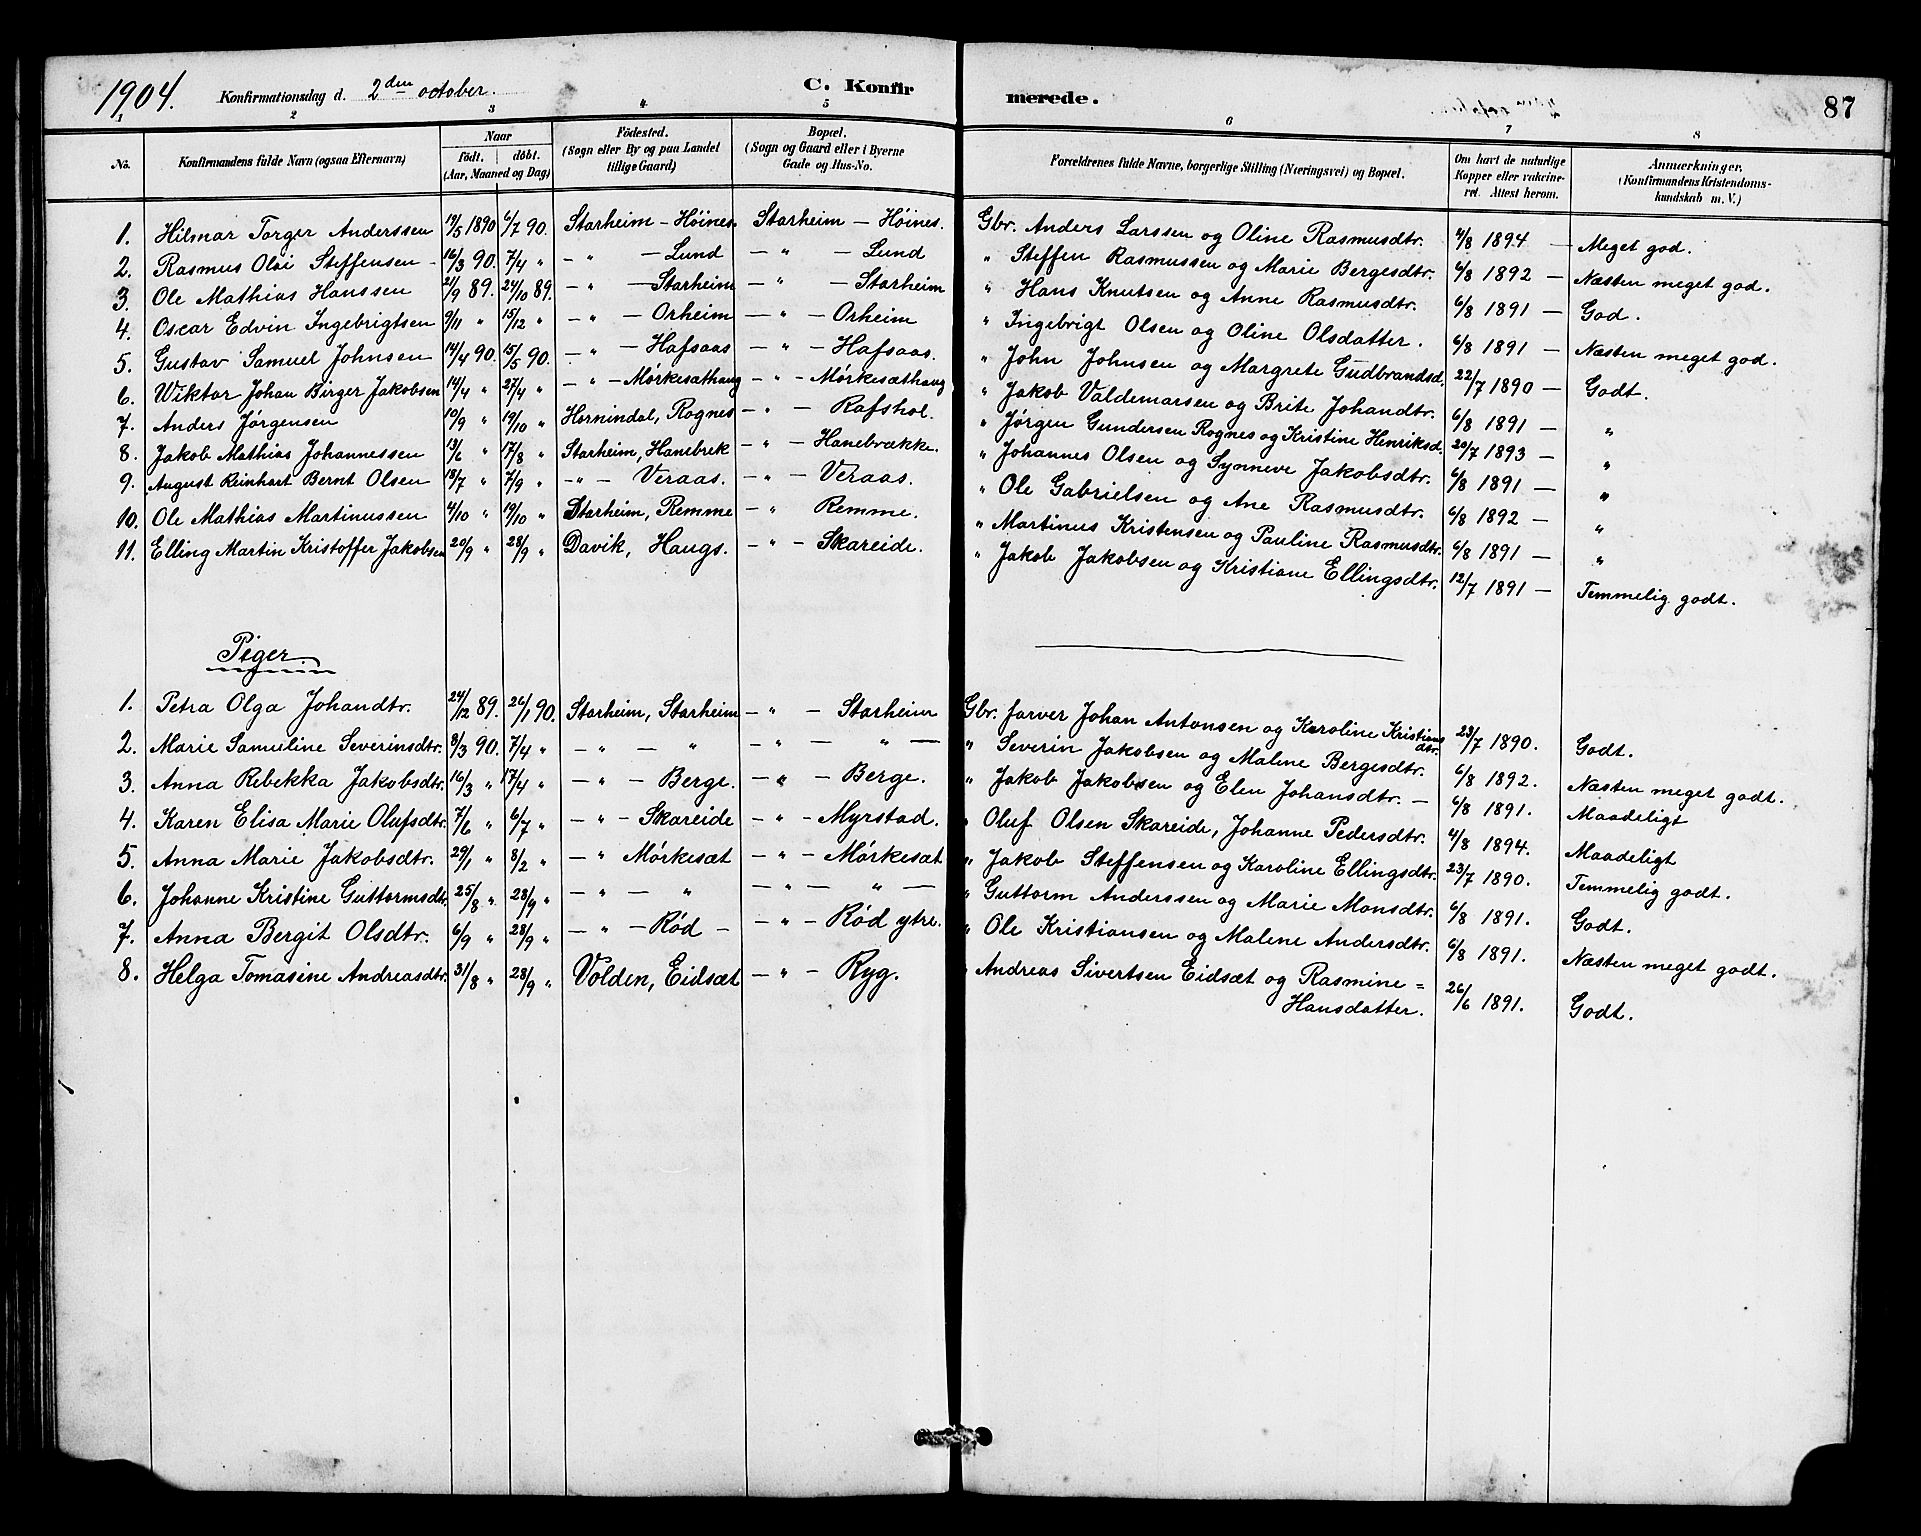 1904. Konfirmationsdag d. 2den october. C. Konfirmerede. 87
1 2 3 4 5 6 7 8
No. Konfirmandens fulde Navn (ogsaa Efternavn) Naar födt. döbt. (Aar, Maaned og Dag) Födested. (Sogn eller By og paa Landet tillige Gaard) Bopæl. (Sogn og Gaard eller i Byerne Gade og Hus-No. Forældrenes fulde Navne, borgerlige Stilling (Næringsvei) og Bopæl. Om havt de naturlige Kopper eller vakcineret. Attest herom. Anmærkninger. (Konfirmandens Kristendomskundskab m. V.)
1. Hilmar Torger Anderssen 19/5 1890 6/7 90. Starheim - Höines. Starheim - Höines. Gbr. Anders Larssen og Oline Rasmusdtr. 4/8 1894 - Meget god.
2. Rasmus Olai Steffensen - 16/3 90. 7/4 " - " - Lund - " - Lund " Steffen Rasmussen og Marie Bergesdtr. 6/8 1892 - Næsten meget god.
3. Ole Mathias Hanssen 21/9 89. 24/10 89. - " - Starheim - " - Starheim " Hans Knutsen og Anne Rasmusdtr. 6/8 1891 - God.
4. Oscar Edvin Ingebrigtsen 9/11 " 15/12 " - " - Orheim - " - Orheim " Ingebrigt Olsen og Oline Olsdatter. 6/8 1891 - Næsten meget god.
5. Gustav Samuel Johnsen 14/4 90. 15/5 90. - " - Hafsaas - " - Hafsaas. " John Johnsen og Margrete Gudbrandsd. 22/7 1890 - Godt.
6. Wiktor Johan Birger Jakobsen 14/4 " 27/4 " - " - Mørkesæthaug - " - Mørkesæthaug " Jakob Valdemarsen og Brite Johandtr. 6/8 1891 - "
7. Anders Jørgensen 10/9 " 19/10 " Hornindal, Rognes - " - Rafshol. " Jørgen Gundersen Rognes og Kristine Henriksd. 20/7 1893 - "
8. Jakob Mathias Johannessen 13/6 " 17/8 " Starheim, Hanebrek - " - Hanebrække. " Johannes Olsen og Synneve Jakobsdtr. 6/8 1891 - "
9. August Reinhart Bernt Olsen 18/7 " 7/9 " - " - Veraas. - " - Veraas. " Ole Gabrielsen og Ane Rasmusdtr. 6/8 1892 - "
10. Ole Mathias Martinussen 4/10 " 19/10 " Starheim, Remme - " Remme. " Martinus Kristensen og Pauline Rasmusdtr. 6/8 1891 - "
11. Elling Martin Kristoffer Jakobsen 20/9 " 28/9 " Davik, Haugs. - " - Skareide. " Jakob Jakobsen og Kristiane Ellingsdtr. 12/7 1891 - Temmelig godt.
Piger
1. Petra Olga Johandtr. 24/12 89. 26/1 90. Starheim, Starheim - " - Starheim Gbr. farver Johan Antonsen og Karoline Kristiansdtr. 23/7 1890. Godt.
2. Marie Samuline Severinsdtr. 8/3 90. 7/4 " - " - " - " - " - " Severin Jakobsen og Malene Bergesdtr. 6/8 1892. Næsten meget godt.
3. Anna Rebekka Jakobsdtr. 16/3 " 17/4 " - " - Berge. - " - Berge. " Jakob Jakobsen og Elen Johansdtr. - 6/8 1891. Maadeligt
4. Karen Elisa Marie Olufsdtr. 7/6 " 6/7 " - " - Skareide - " - Myrstad. " Oluf Olsen Skareide, Johanne Pedersdtr. 4/8 1894. Maadeligt
5. Anna Marie Jakobsdtr. 29/1 " 8/2 " - " Mørkesæt - " - Mørkesæt " Jakob Steffensen og Karoline Ellingsdtr. 23/7 1890. Temmelig godt.
6. Johanne Kristine Guttormsdtr. 25/8 " 28/9 " - " - " - " - " - " Guttorm Anderssen og Marie Monsdtr. 6/8 1891. Godt.
7. Anna Bergit Olsdtr. 6/9 " 28/9 " - " - Rød - - " - Rød ytre. " Ole Kristiansen og Malene Andersdtr. 6/8 1891. Næsten meget godt.
8. Helga Tomasine Andreasdtr. 31/8 " 28/9 " Volden, Eidsæt - " - Ryg. " Andreas Sivertsen Eidsæt og Rasmine =
Hansdatter. 26/6 1891. Godt.